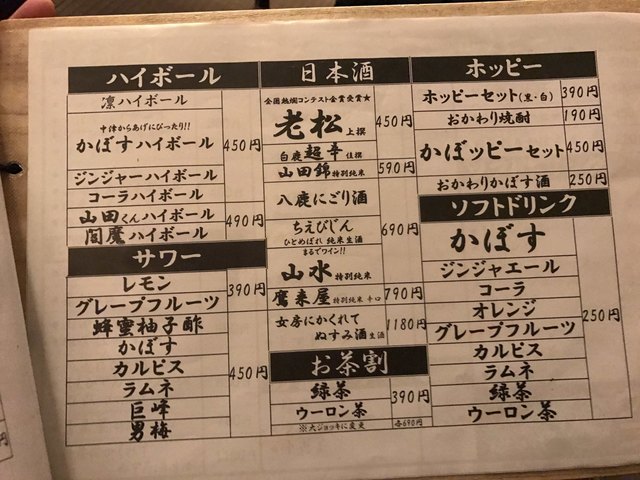 ハイボール
凛ハイボール
中津からあげにぴったり!!
かぼすハイボール
450円
ジンジャーハイボール
コーラハイボール
山田くんハイボール
490円
閻魔ハイボール
サワー
レモン
390円
グレープフルーツ
蜂蜜柚子酢
かぼす
カルピス
450円
ラムネ
巨峰
男梅
日本酒
全国熱燗コンテスト金賞受賞★
老松上撰
450円
白鹿 超辛 佳撰
山田錦 特別純米
590円
八鹿にごり酒
ちえびじん
690円
ひとめぼれ 純米生酒
まるでワイン!!
山水 特別純米
鷹来屋 特別純米 辛口
790円
女房にかくれて
ぬすみ酒 生酒
1180円
お茶割
緑茶
390円
ウーロン茶
※大ジョッキに変更
各690円
ホッピー
ホッピーセット(黒・白)
390円
おかわり焼酎
190円
かぼッピーセット
450円
おかわりかぼす酒
250円
ソフトドリンク
かぼす
ジンジャエール
コーラ
オレンジ
250円
グレープフルーツ
カルピス
ラムネ
緑茶
ウーロン茶